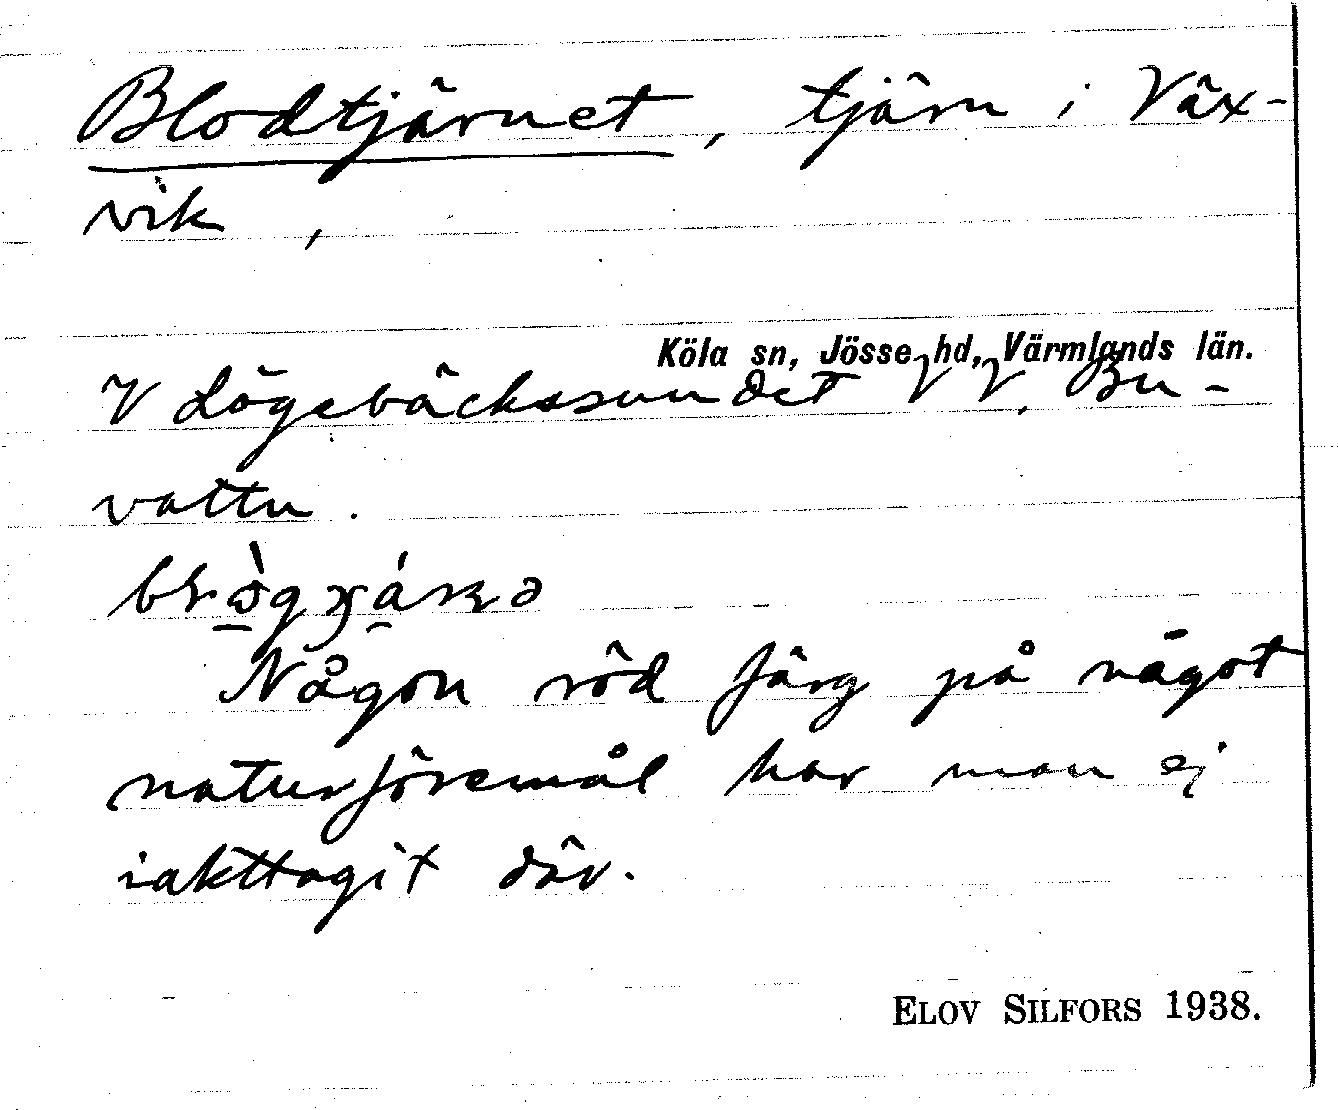 Blodtjärnet, tjärn i Väx-
vik,
Köla sn, Jösse hd, Värmlands län.
V Lögebäckssundet V V. Bu-
vattn.
Någon röd färg på något
naturföremål har man ej
iakttagit där.
ELOV SILFORS 1938.